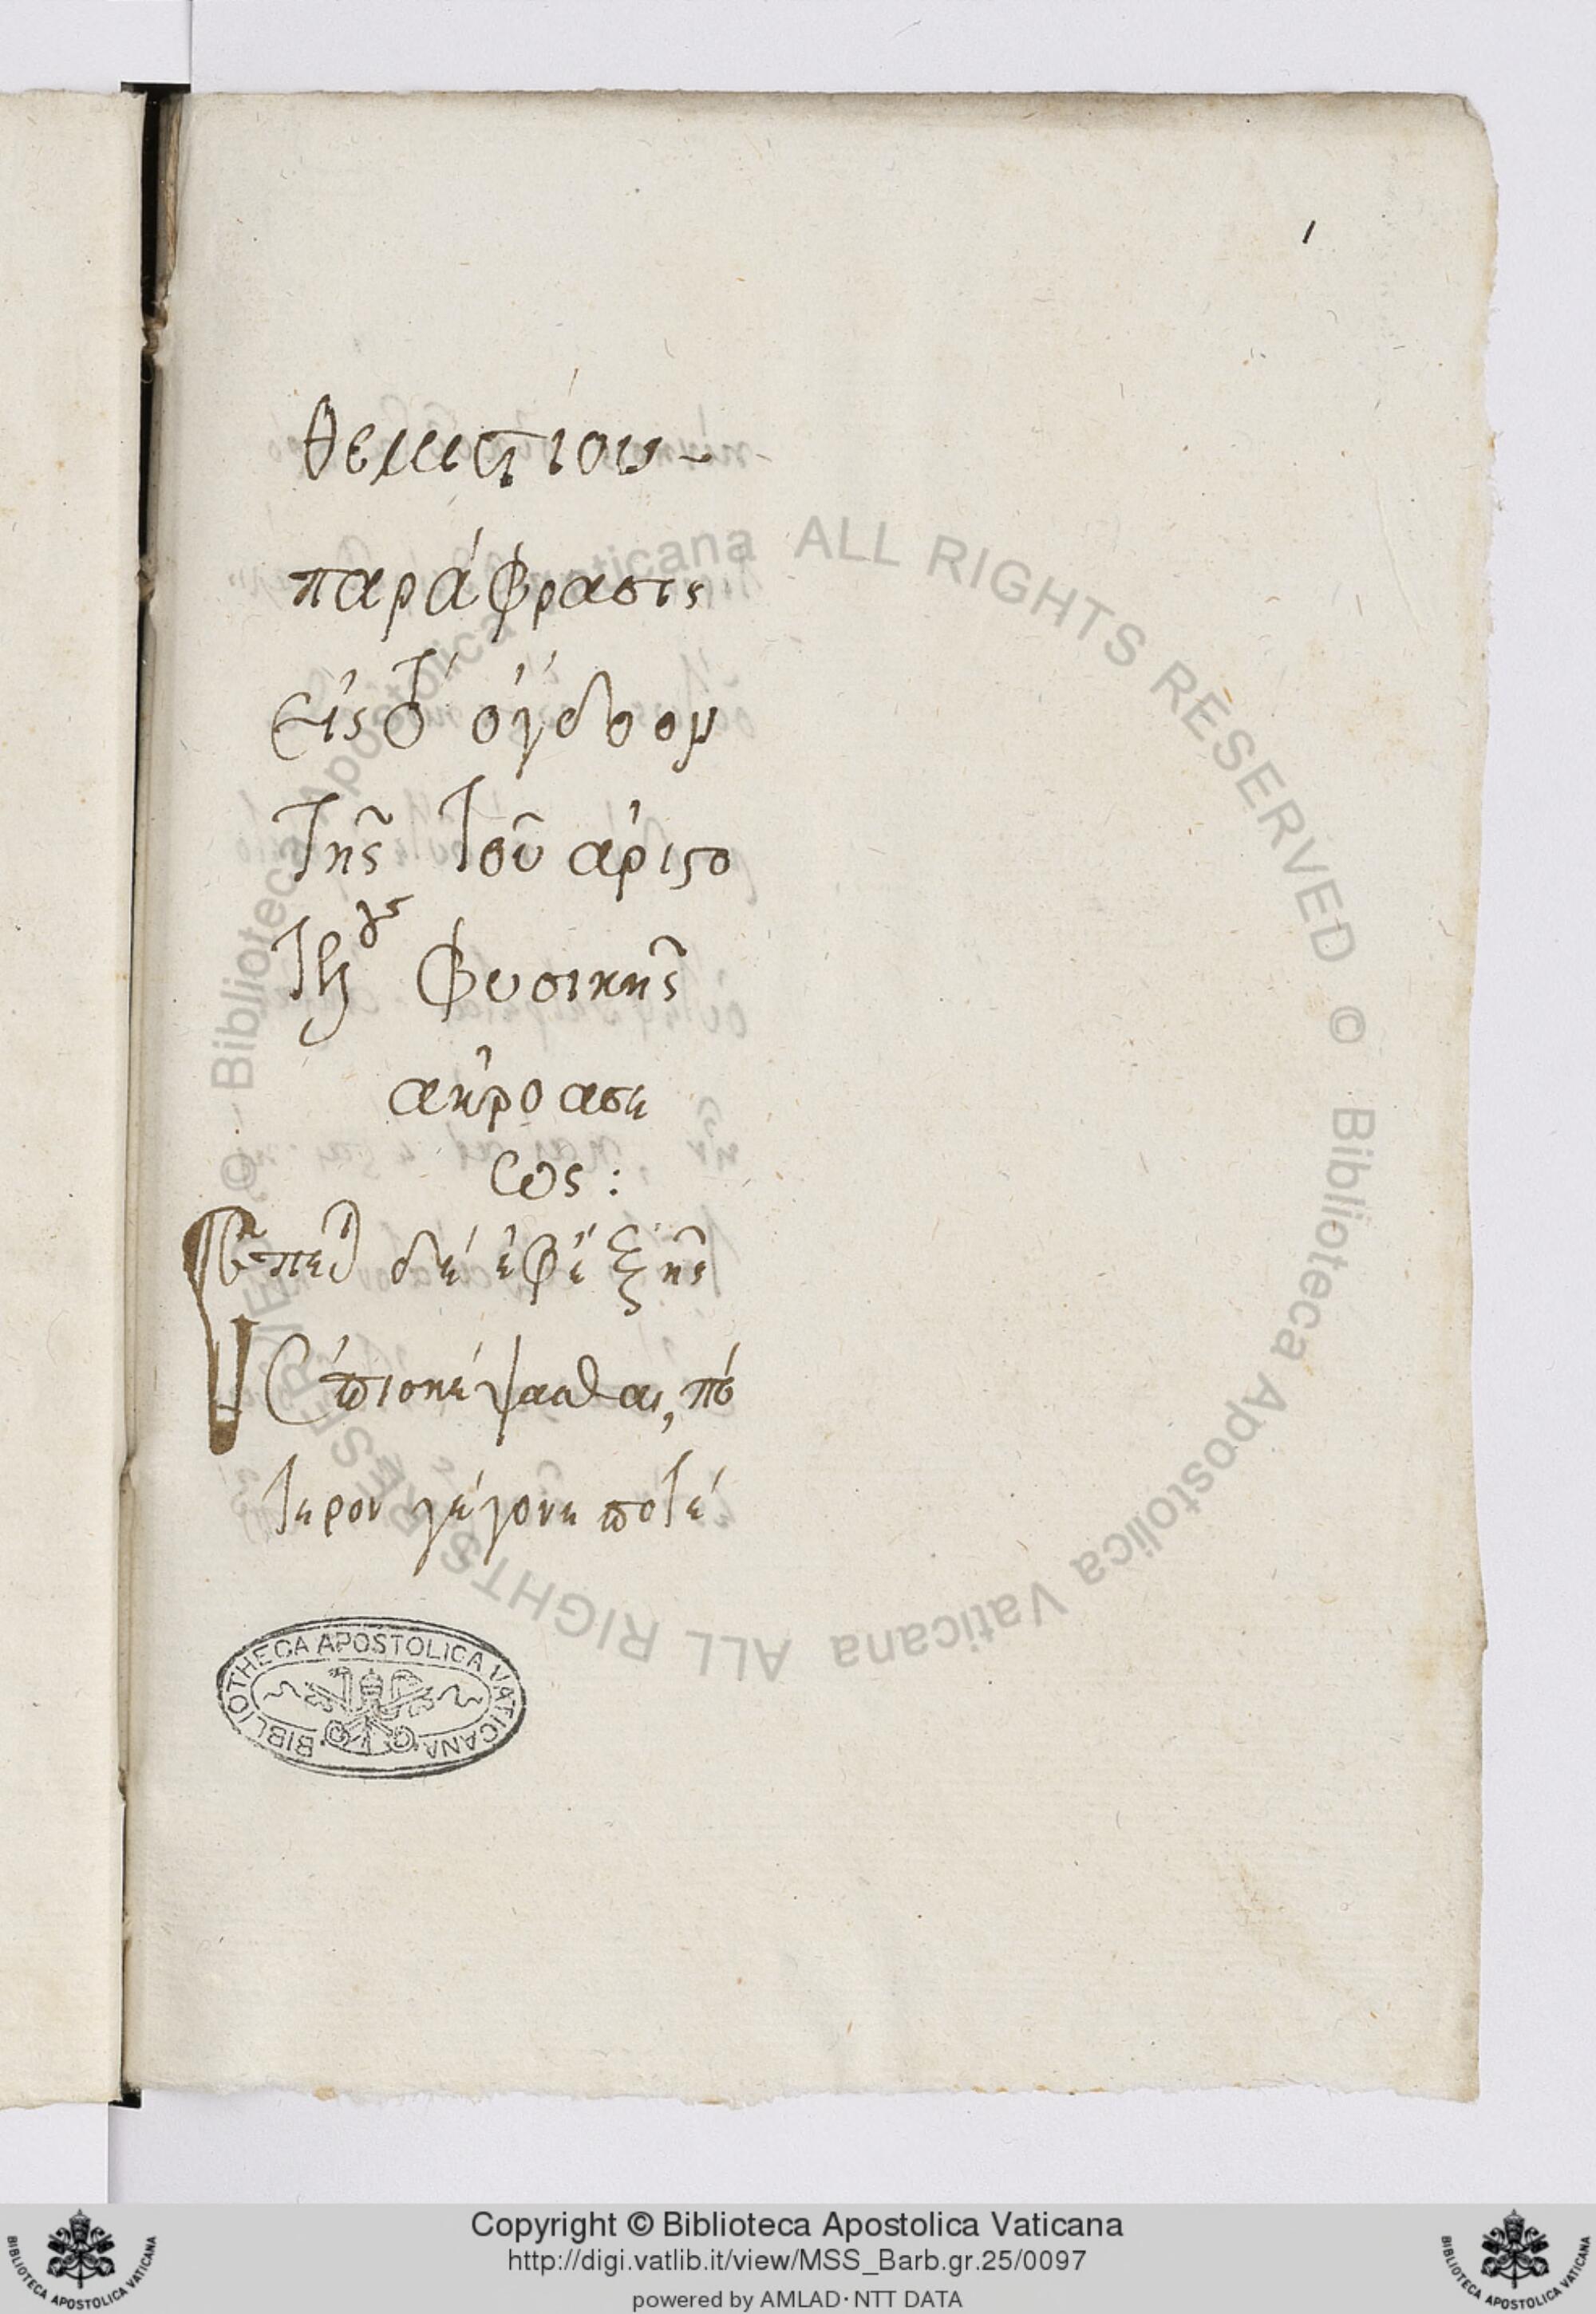 1
θεμιστίου~
παράφρασις
εἰς τὸ ὄγδοον
τῆς τοῦ ἀριστο
τέλους φυσικῆς
ἀκροάσε
ως:
δὲ ἐφεξῆς
ἐπισκέψασθαι, πό
τερον γέγονε ποτὲ
BIBLIOTHECA APOSTOLICA VATICANA
© Biblioteca Apostolica Vaticana ALL RIGHTS RESERVED © Biblioteca Apostolica Vaticana ALL RIGHTS RESERVED
Copyright © Biblioteca Apostolica Vaticana
http://digi.vatlib.it/view/MSS_Barb.gr.25/0097
powered by AMLAD·NTT DATA
BIBLIOTECA APOSTOLICA VATICANA
BIBLIOTECA APOSTOLICA VATICANA